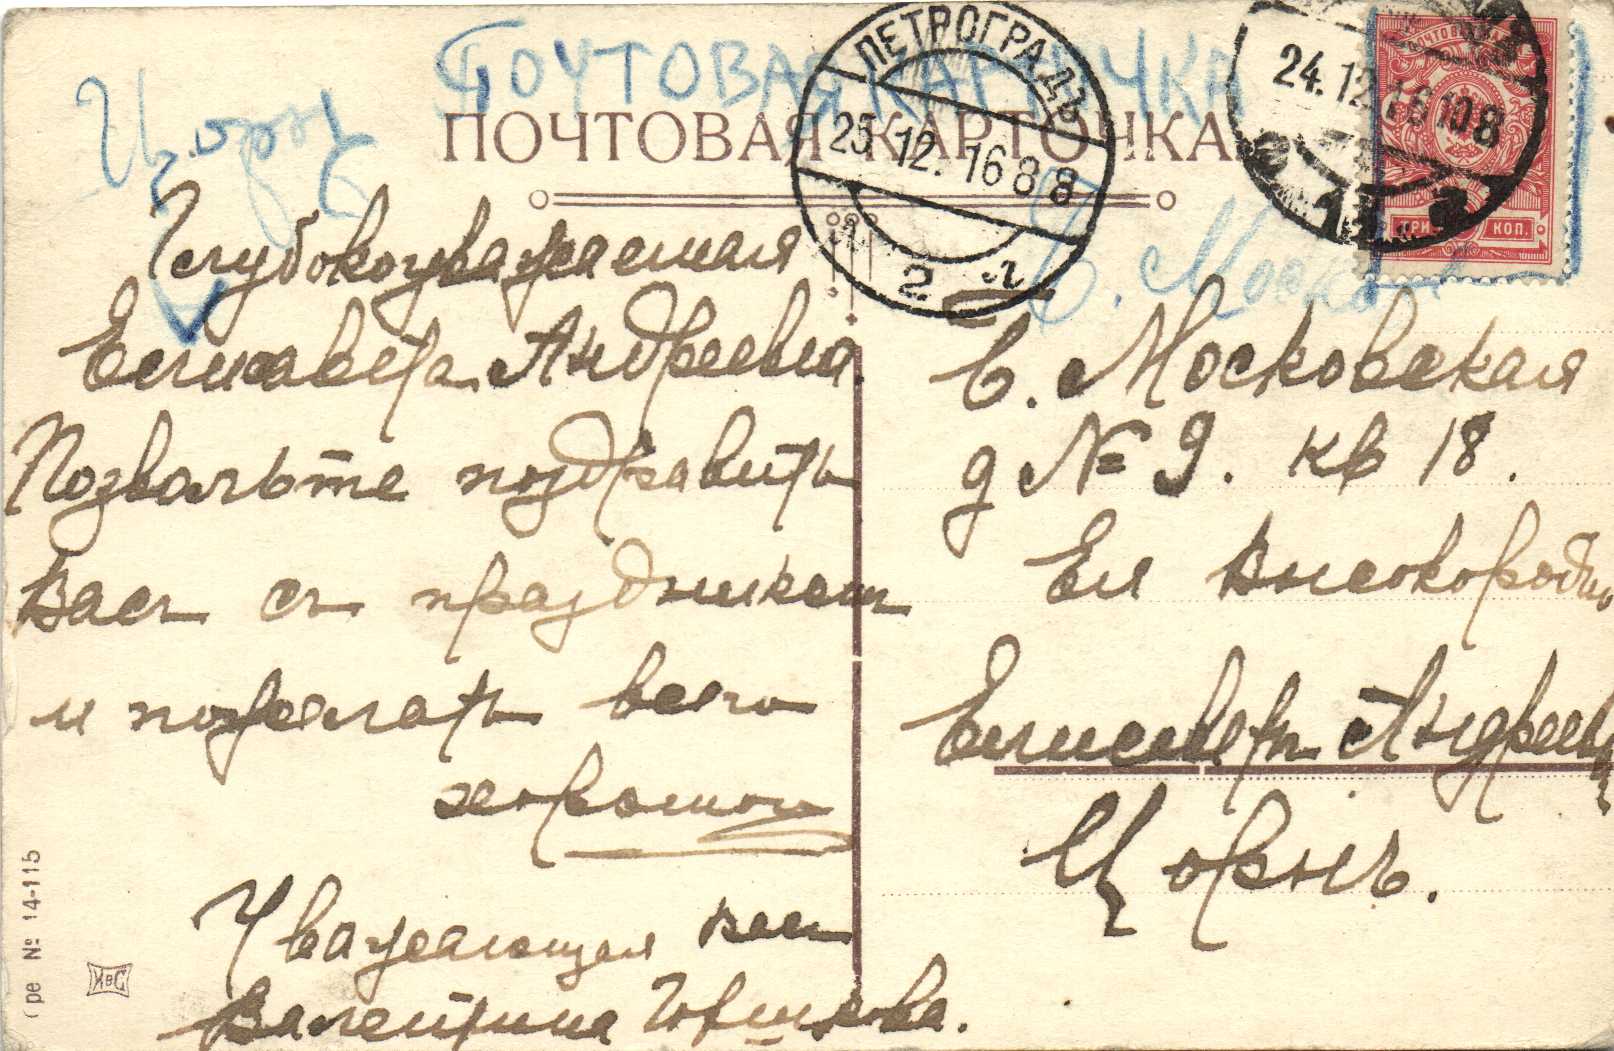 ПОЧТОВАЯ КАРТОЧКА
ПОЧТОВАЯ КАРТОЧКА
ПЕТРОГРАДЪ
25.12.16 8 8
2
24.12.16 10 8
ПОЧТОВАЯ
ТРИ КОП.
Цорнъ
Б. Моско
Глубокоуважаемая
Елисавета Андреевна.
Позвольте поздравить
Васъ съ праздникомъ
и пожелать всего
хорошого
Уважающая Васъ
Валентина Горшкова.
Б. Московская
д № 9. кв 18.
Ея Высокородію
Елисаветѣ Андреевнѣ
Цорнъ.
ре № 14-115